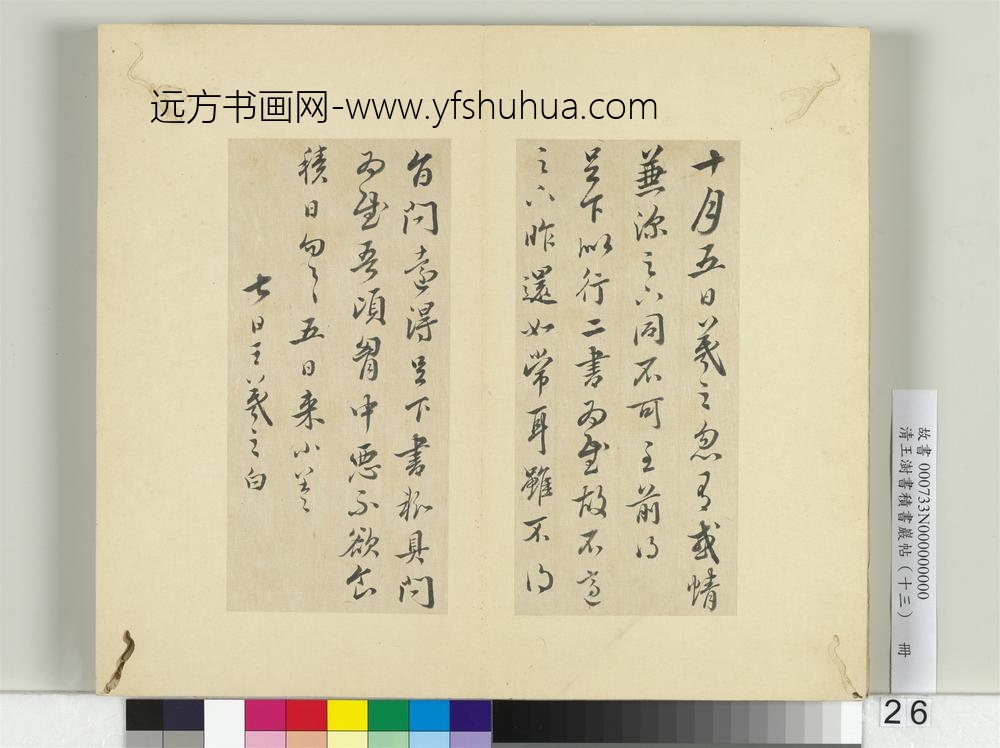 远方书画网-www.yfshuhua.com
十月五日羲之忽有感情
兼深之六同不可言前得
足下似行二書為慰故不適
之六昨還如常耳雖不得
旨問壹得足下書粗具問
為慰吾頃胃中惡不欲食
積日匆匆五日來小差
七日王羲之白
故書 000733N000000000
清王澍書積書巖帖（十三） 冊
26